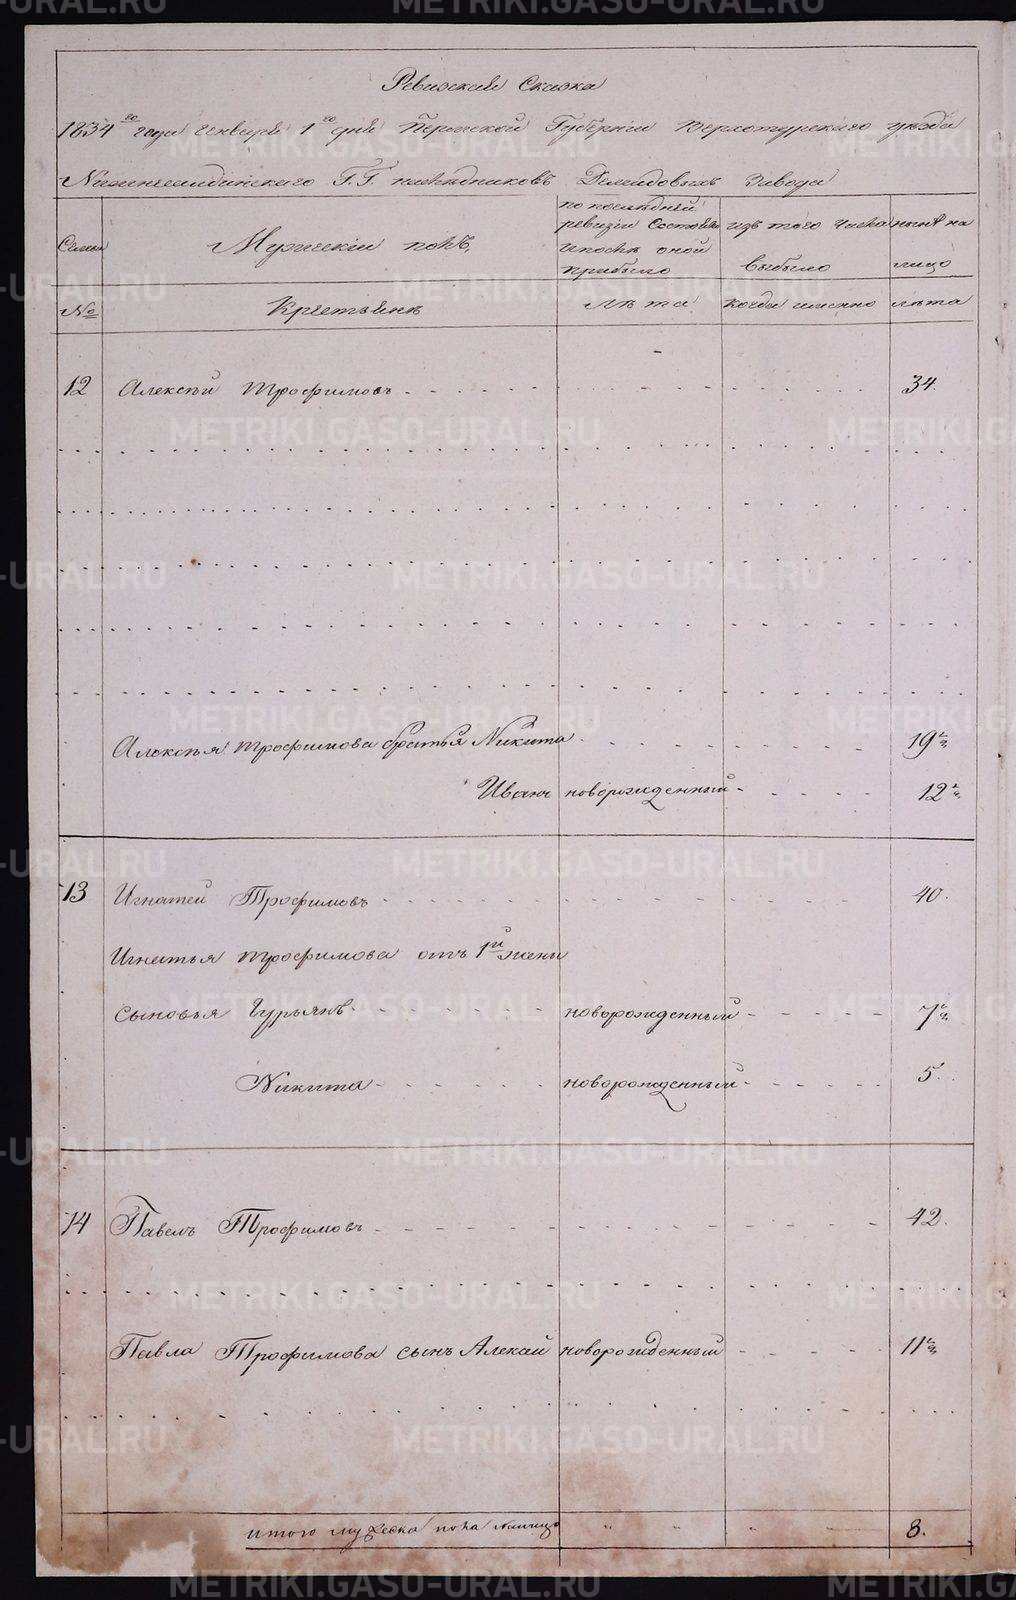 Ревизская Сказка
1834го года Генваря 1го дня Пермской Губернiи Верхотурскаго уезда
Г.Г. наследниковъ Демидовыхъ Завода
Семьи
Мужескiй полъ,
по последней ревизiи Состояло и после оной прибыло
изъ того числа выбыло
ныне на лицо
№
Крестьяне
лета
когда именно
лета
12 Алексей Трофимовъ 34.
Алексея Трофимова братья Никита 19
Иванъ новорожденный 12
13 Игнатей Трофимовъ 40.
Игнатья Трофимова отъ 1й жены
сыновья Гурьянъ новорожденный 7
Никита новорожденный 5.
14 Павелъ Трофимовъ 42.
Павла Трофимова сынъ Алексей новорожденный 11
итого мужеска пола налицо " " " " 8.
METRIKI.GASO-URAL.RU